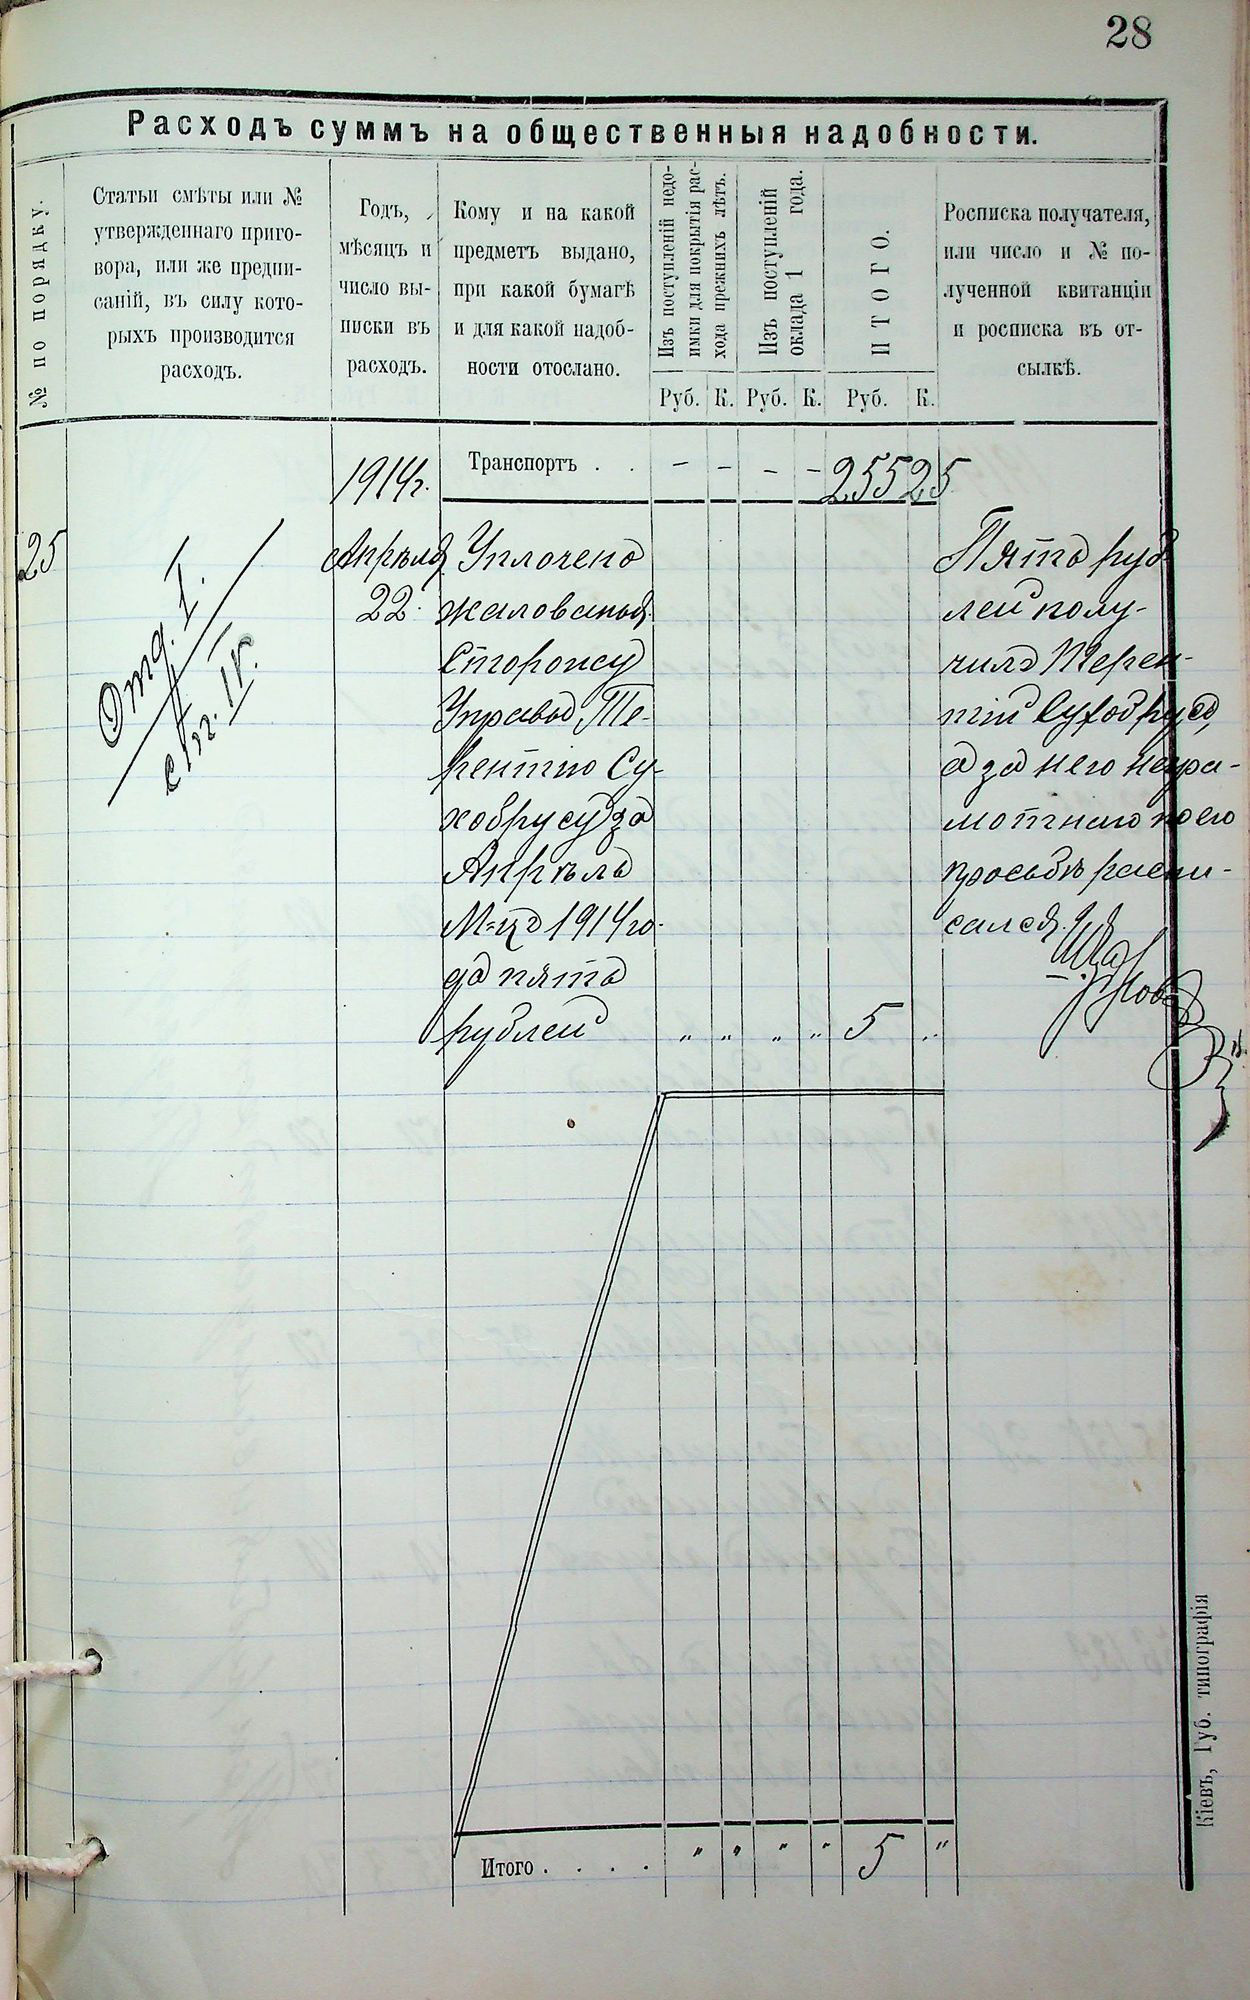 28
Расходъ суммъ на общественныя надобности.
№ по порядку.
Статьи смѣты или №
утвержденнаго приго-
вора, или же предпи-
саній, въ силу кото-
рыхъ производится
расходъ.
Годъ,
мѣсяцъ и
число вы-
писки въ
расходъ.
Кому и на какой
предметъ выдано,
при какой бумагѣ
и для какой надоб-
ности отослано.
Изъ поступленій недо-
имки для покрытія рас-
хода прежнихъ лѣтъ.
Изъ поступленій
оклада 1 года.
ИТОГО.
Росписка получателя,
или число и № по-
лученной квитанціи
и росписка въ от-
сылкѣ.
Руб. К. Руб. К. Руб. К.
1914г.
Транспортъ . . – – – – 255 25
25
Отд. I.
ст. IV.
Апрѣля
22
Уплочено
жалованья
Сторожу
Управы Те-
рентію Су-
хобрусу за
Апрѣль
М=цъ 1914 го-
да пять
рублей „ „ „ „ 5 „
Пять руб-
лей полу-
чилъ Терен-
тій Сухобрусъ,
а за него негра-
мотнаго по его
просьбѣ распи-
сался
Итого . . . . „ „ „ „ 5 „
Кіевъ, Губ. типографія